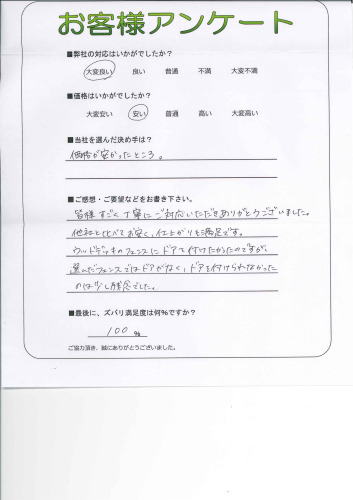 お客様アンケート
■弊社の対応はいかがでしたか？
大変良い 良い 普通 不満 大変不満
■価格はいかがでしたか？
大変安い 安い 普通 高い 大変高い
■当社を選んだ決め手は？
価格が安かったところ。
■ご感想・ご要望などをお書き下さい。
皆様すごく丁寧にご対応いただきありがとうございました。
他社と比べてお安く、仕上がりも満足です。
ウッドデッキのフェンスにドアを付けたかったのですが、
選んだフェンスではドアがなく、ドアを付けられなかった
のは少し残念でした。
■最後に、ズバリ満足度は何%ですか？
100 %
ご協力頂き、誠にありがとうございました。